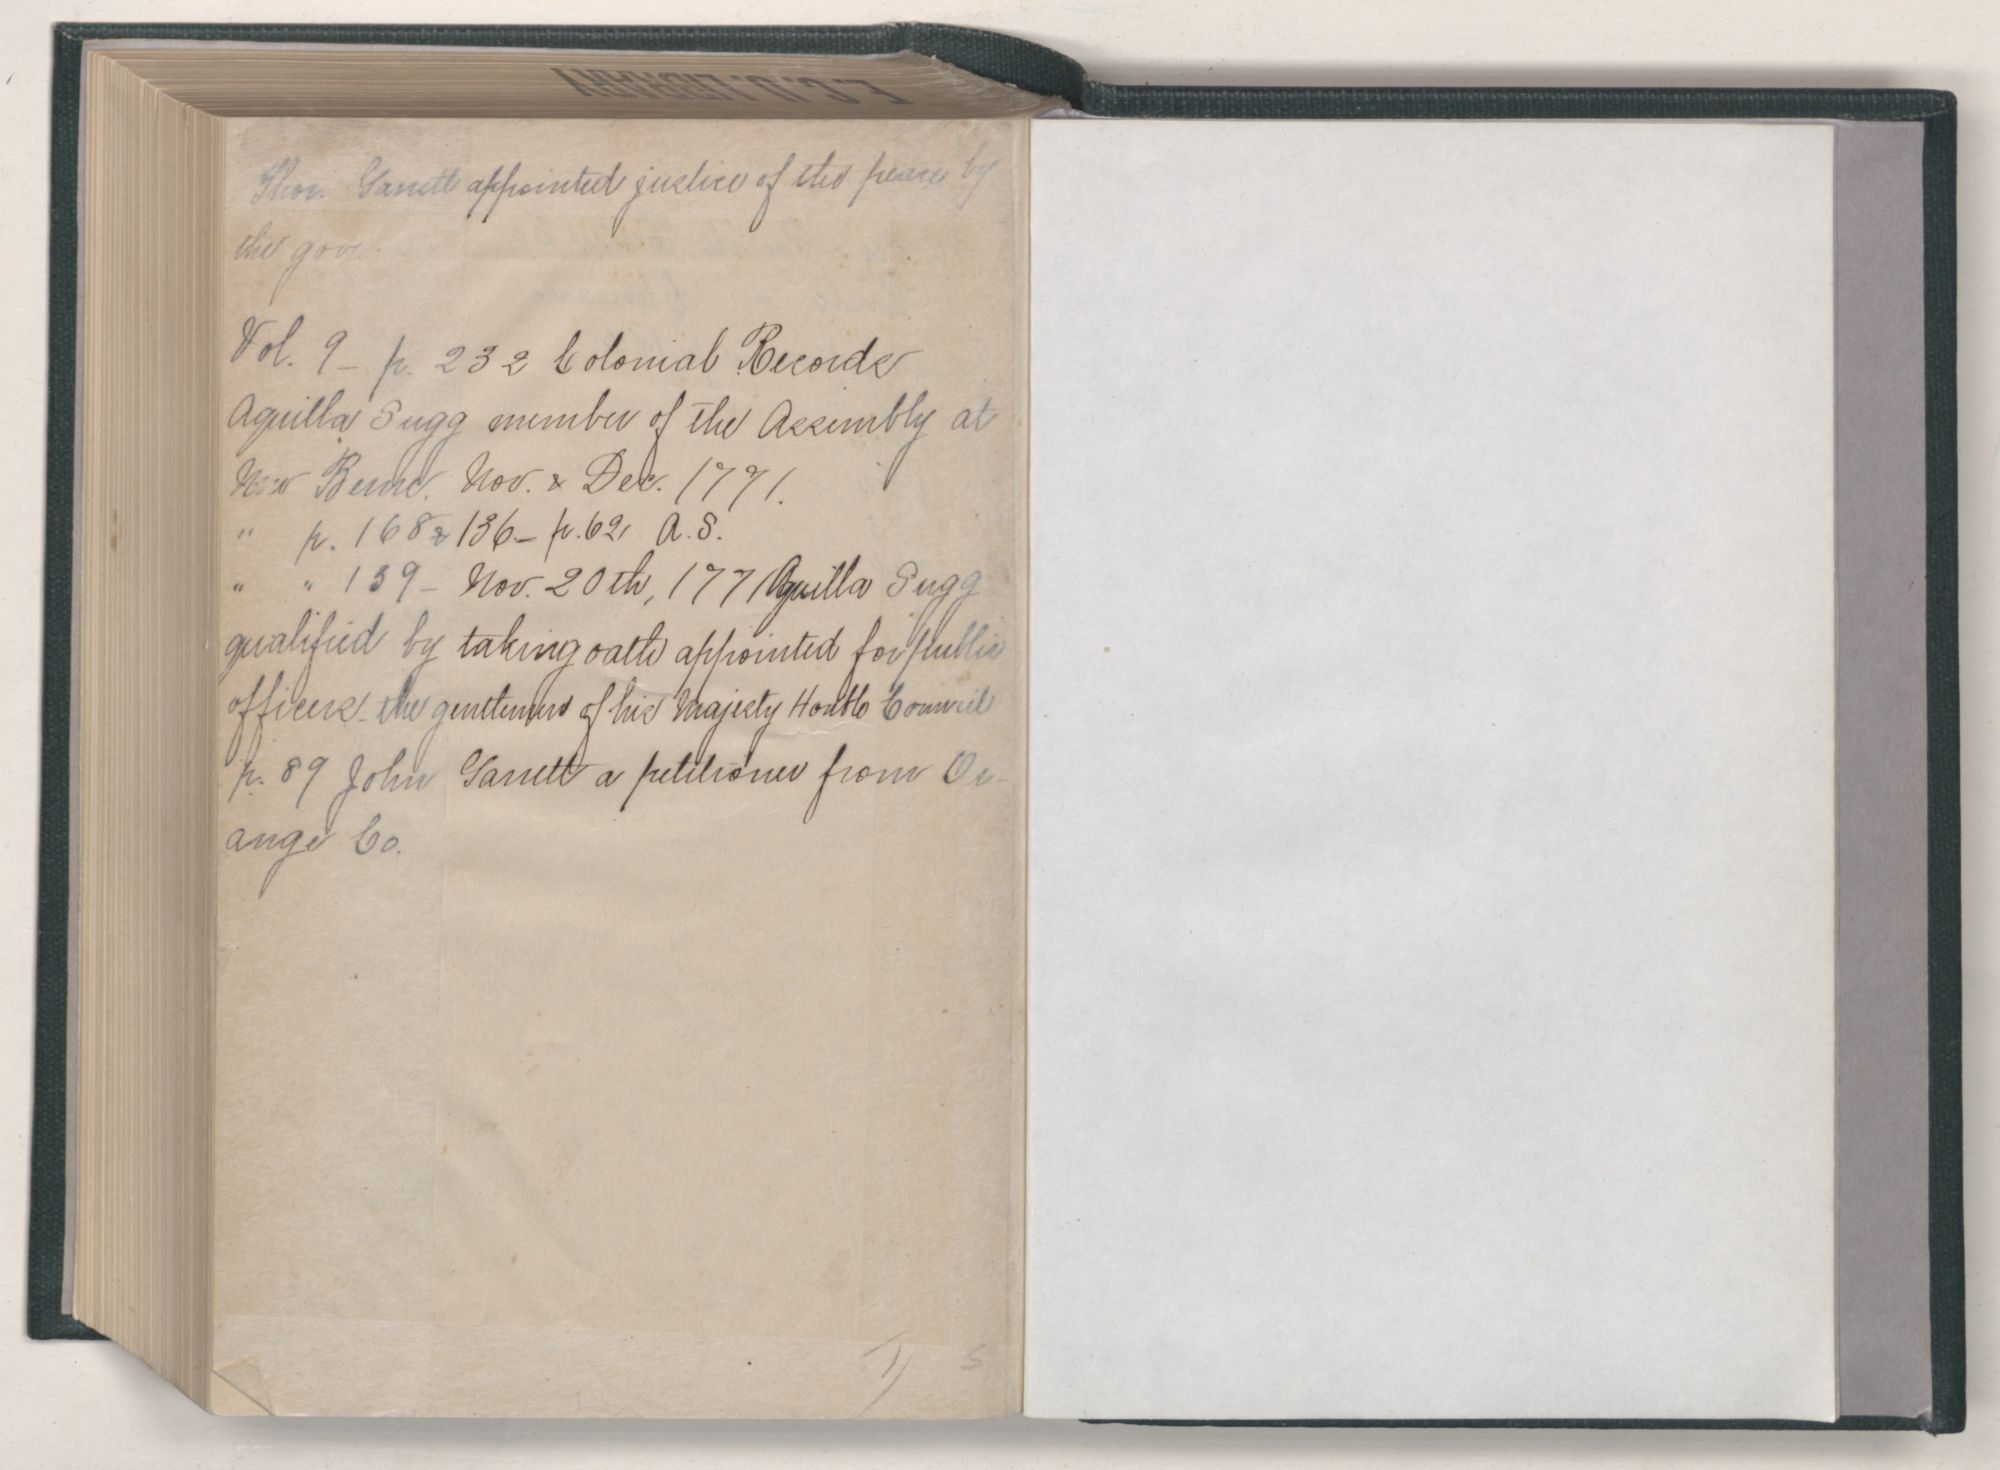 E.C.U. LIBRARY
Thos. Garrett appointed justice of the peace by
the gov.
Vol. 9 - p. 232 Colonial Records
Aquilla Sugg member of the Assembly at
New Berne. Nov. & Dec. 1771.
" p. 168 & 136 - p. 62 A.S.
" " 139 - Nov. 20th, 1771 Aquilla Sugg
qualified by taking oath appointed for public
officers - the gentlemen of his Majesty Honble Council
p. 89 John Garrett a petitioner from Or-
ange Co.